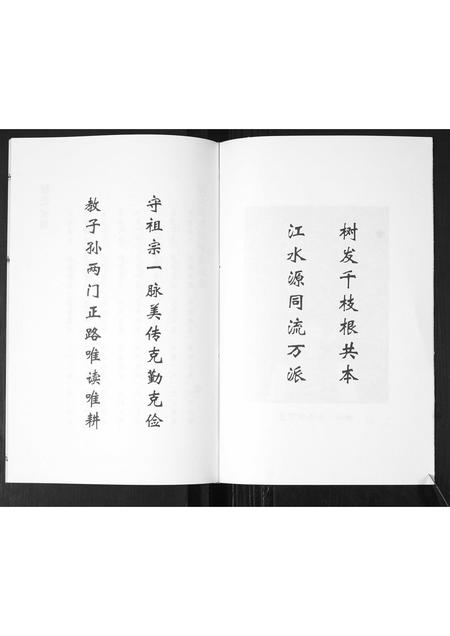 树发千枝根共本
江水源同流万派
守祖宗一脉美传克勤克俭
教子孙两门正路唯读唯耕